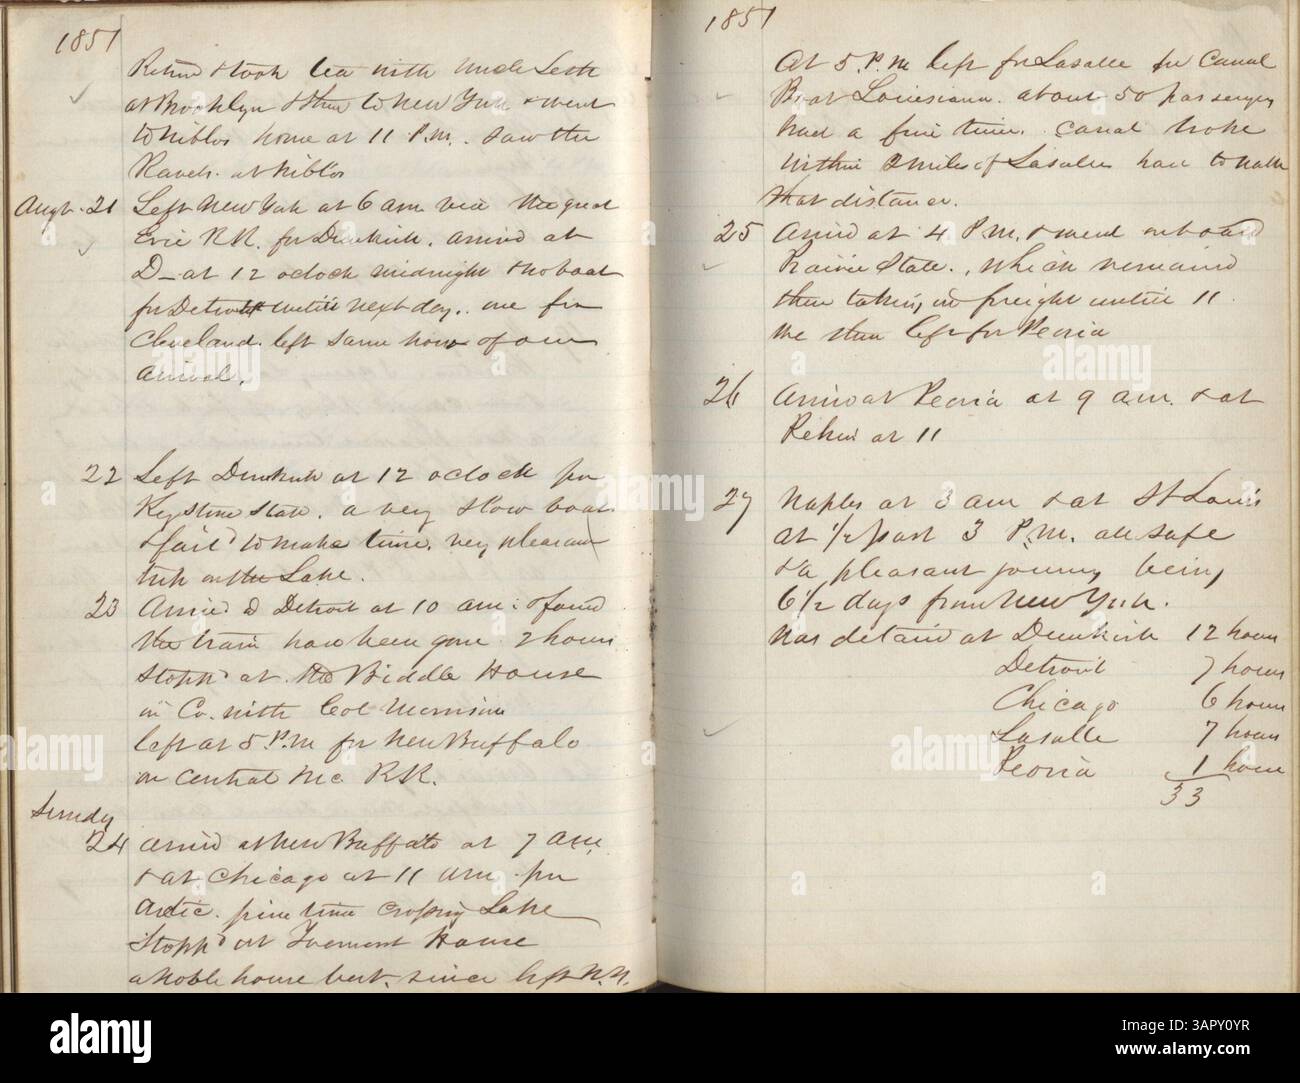 1851
Retur'd & took tea with Uncle Seth
at Brooklyn & then to New York & went
to Niblos home at 11 P.M. saw the
Ravels. at Niblos
Augt. 21 Left New York at 6 am via the great
Erie RR. for Dunkirk. arrived at
D— at 12 oclock midnight & no boat
for Detroit until next day. one for
Cleveland left same hour of our
arrival.
22 Left Dunkirk at 12 oclock per
Keystone State. a very slow boat
& fail'd to make time. very pleasant
trip on the Lake.
23 Arrived D Detroit at 10 am: & found
the train have been gone 2 hours
Stopp'd at the Biddle House
in Co. with Col Morrison
left at 5 P.M for New Buffalo
on Central Mc RR.
Sunday
24 arriv'd at New Buffalo at 7 am,
& at Chicago at 11 am per
Arctic. fine time crossing Lake
Stopp'd at Tremont House
a noble house best. since left N.Y.
1851
At 5. P.M left for Lasalle per Canal
Boat Louisiana. about 50 passengers
had a fine time. Canal broke
within 2 miles of Lasalle had to walk
that distance.
25 Arriv'd at 4 P.M. & went on board
Prairie State., which remained
there taking in freight untill 11
we then left for Peoria
26 Arriv'd at Peoria at 9 am. & at
Pekin at 11
27 Naples at 3 am & at St Louis
at 1/2 past 3 P.M. all safe
& a pleasant journey being
6 1/2 days from New York.
Was detain'd at Dunkirk 12 hours
Detroit 7 hours
Chicago 6 hours
Lasalle 7 hours
Peoria 1 hour
33
alamy
Image ID: 3APY0YR
www.alamy.com